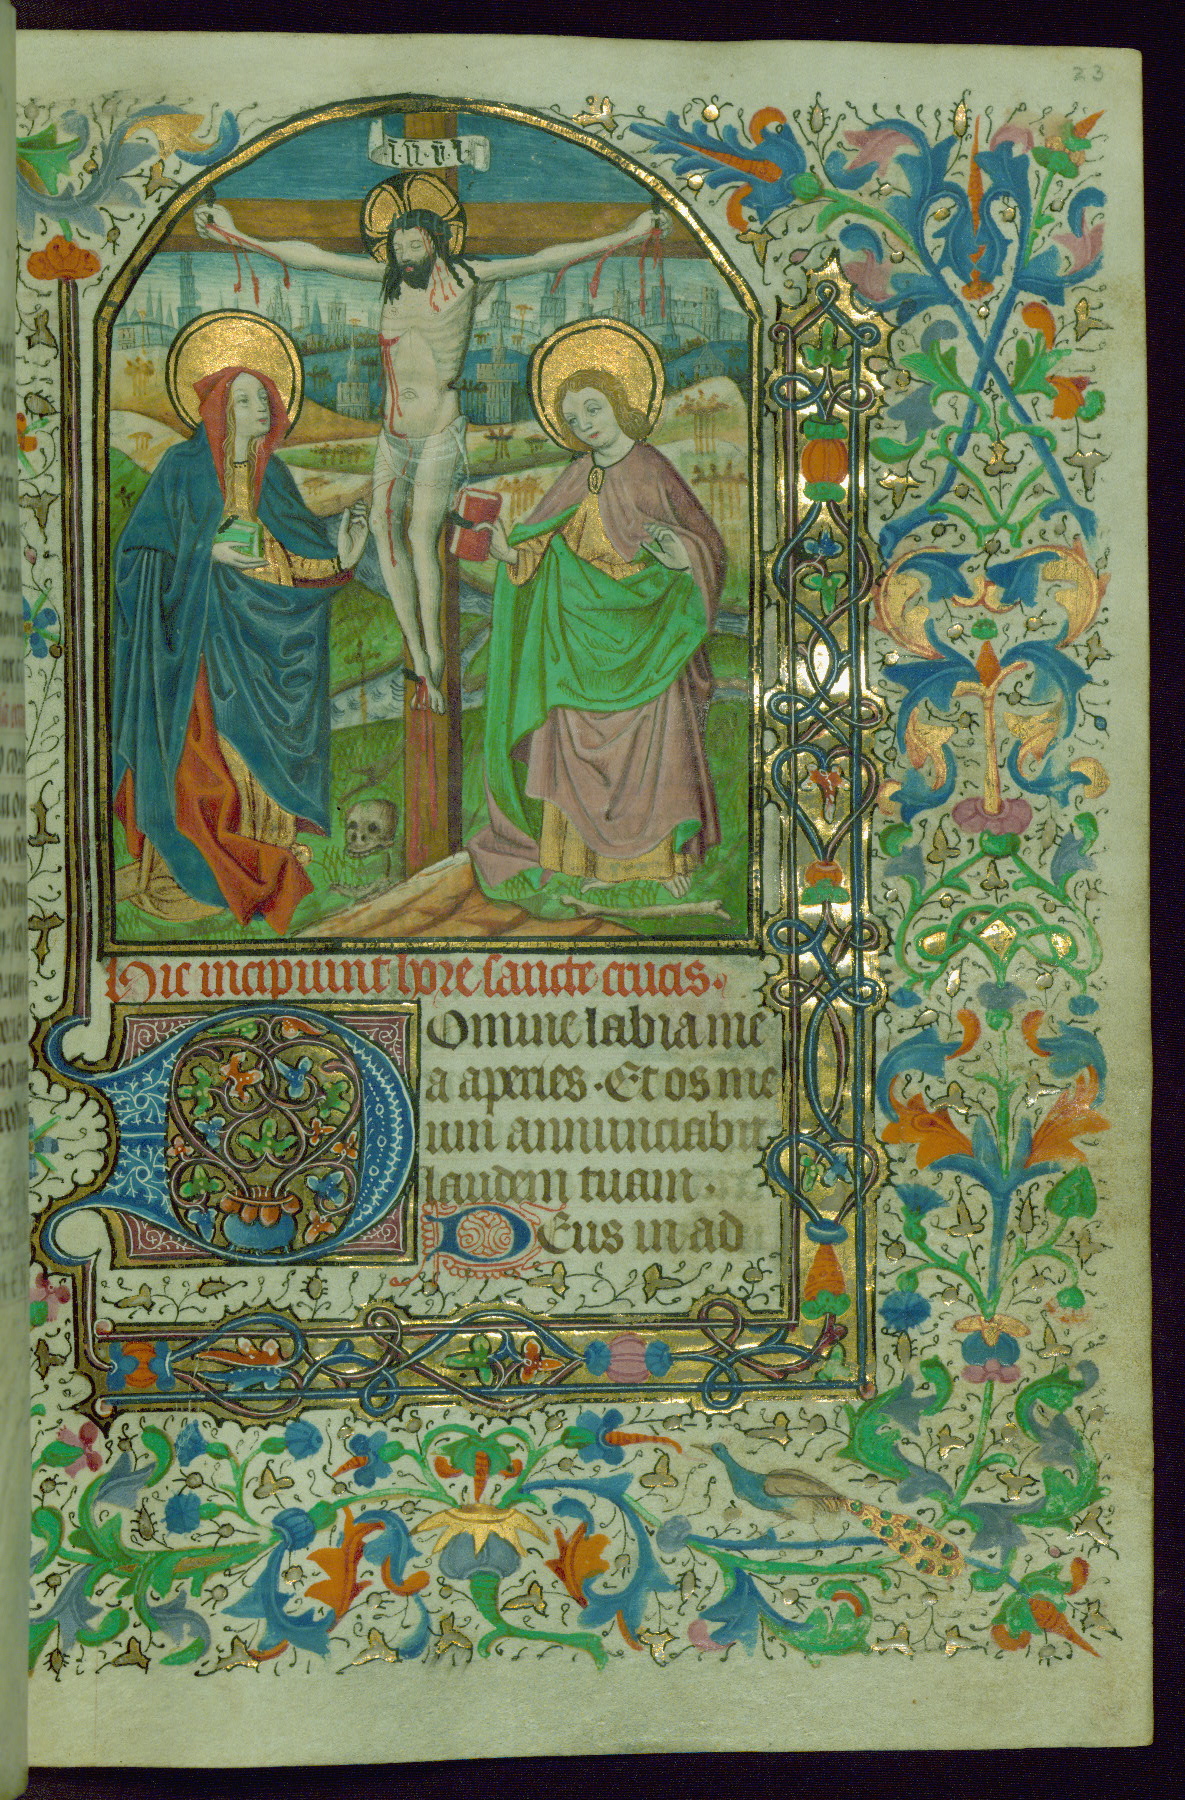 23
·i·n·r·i·
Hic incipiunt hore sancte crucis.
Domine labia me
a aperies. Et os me
um annunciabit
laudem tuam.
Deus in ad